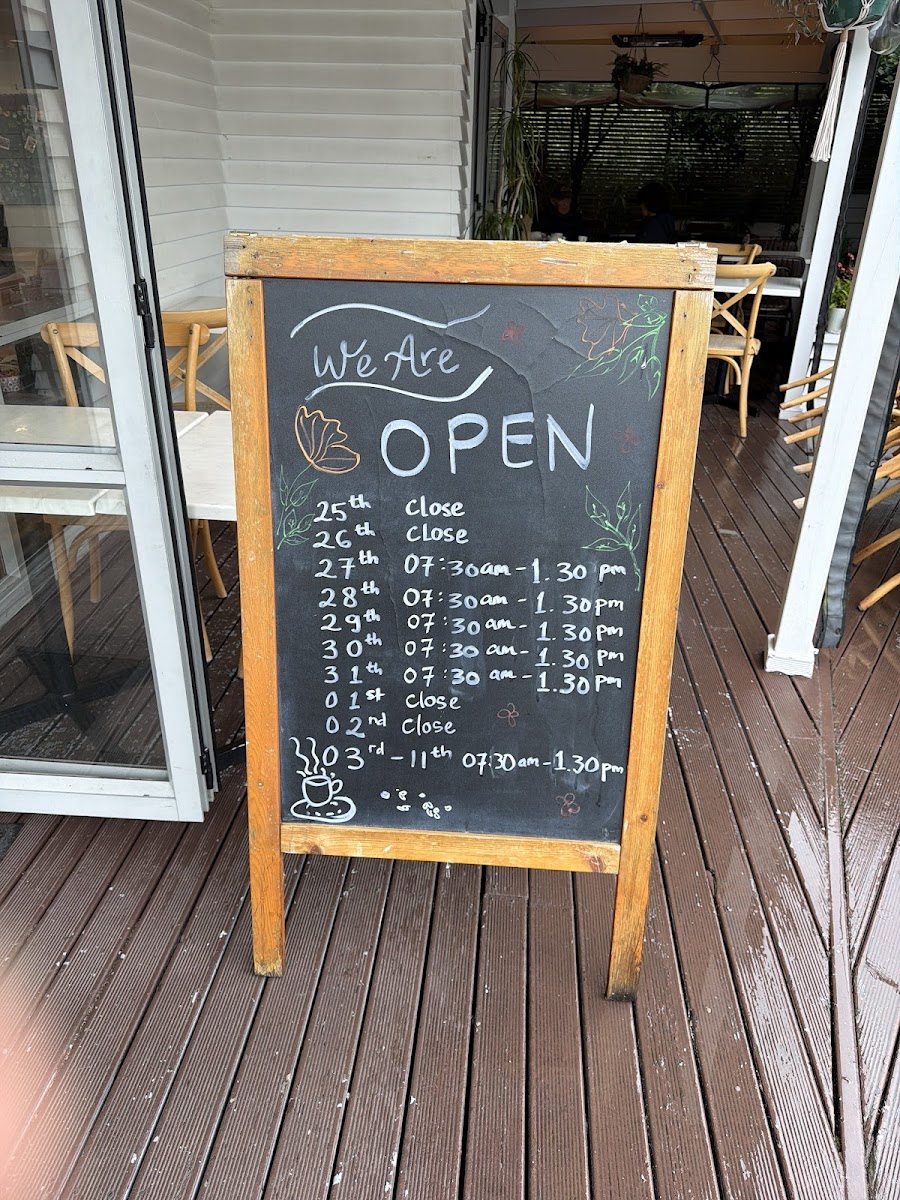 We Are
OPEN
25th Close
26th Close
27th 07:30am - 1.30 pm
28th 07:30am - 1.30pm
29th 07:30am - 1.30pm
30th 07:30am - 1.30pm
31th 07:30 am - 1.30pm
01st Close
02nd Close
03rd - 11th 07:30am - 1.30pm